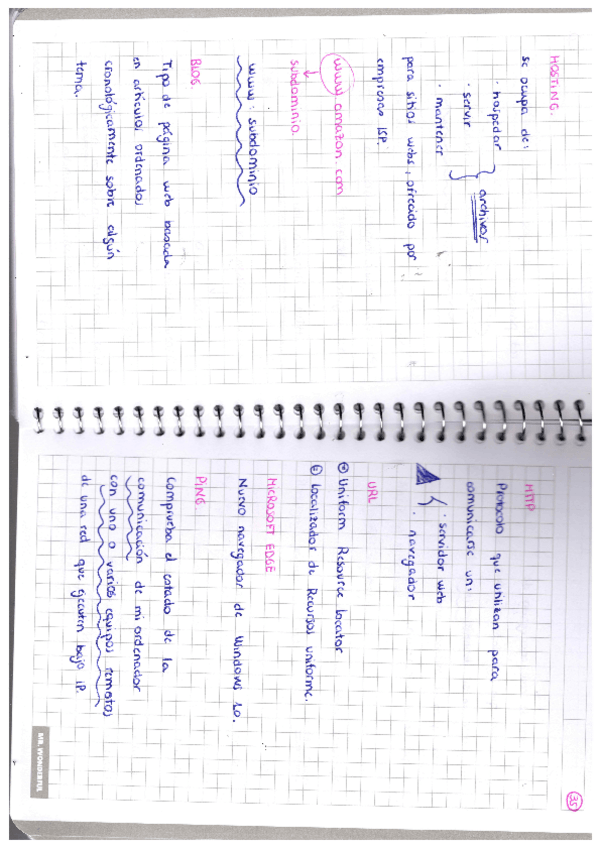 HOSTING.
se ocupa de:
· hospedar
· servir
· mantener
archivos
para sitios webs, ofrecido por
empresas ISP.
www.amazon.com
subdominio.
www: subdominio
BLOG.
Tipo de página web basada
en artículos ordenados
cronológicamente sobre algún
tema.
35
HTTP
Protocolo que utilizan para
comunicarse un:
· servidor web
· navegador
URL
Uniform Resource Locator
Localizador de Recursos uniforme.
MICROSOFT EDGE
Nuevo navegador de Windows 10.
PING.
Comprueba el estado de la
comunicación de mi ordenador
con uno o varios equipos remotos
de una red que ejecuten bajo iP.
MR. WONDERFUL